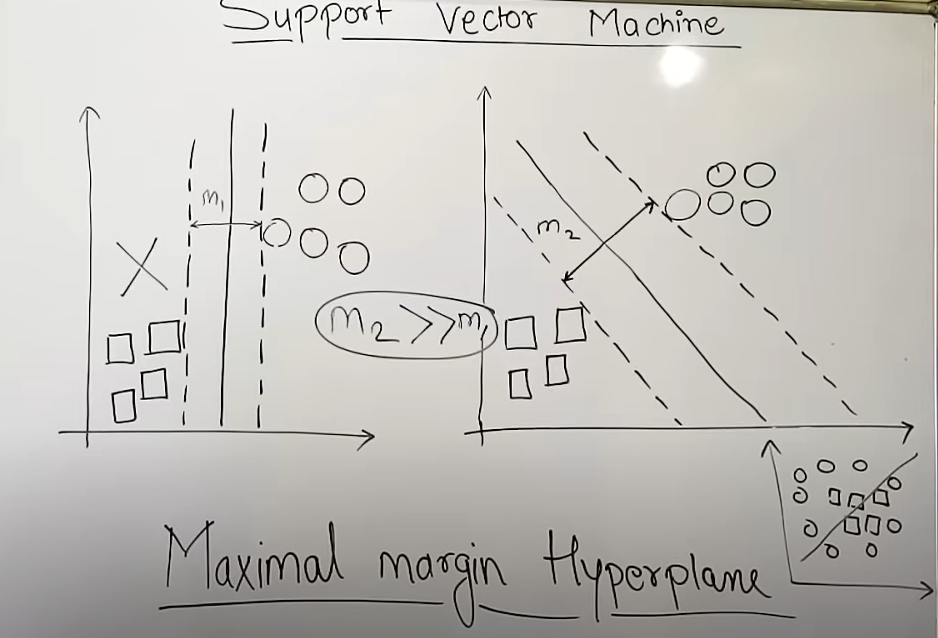 Support Vector Machine
m₁
m₂
m₂ >> m₁
Maximal margin Hyperplane